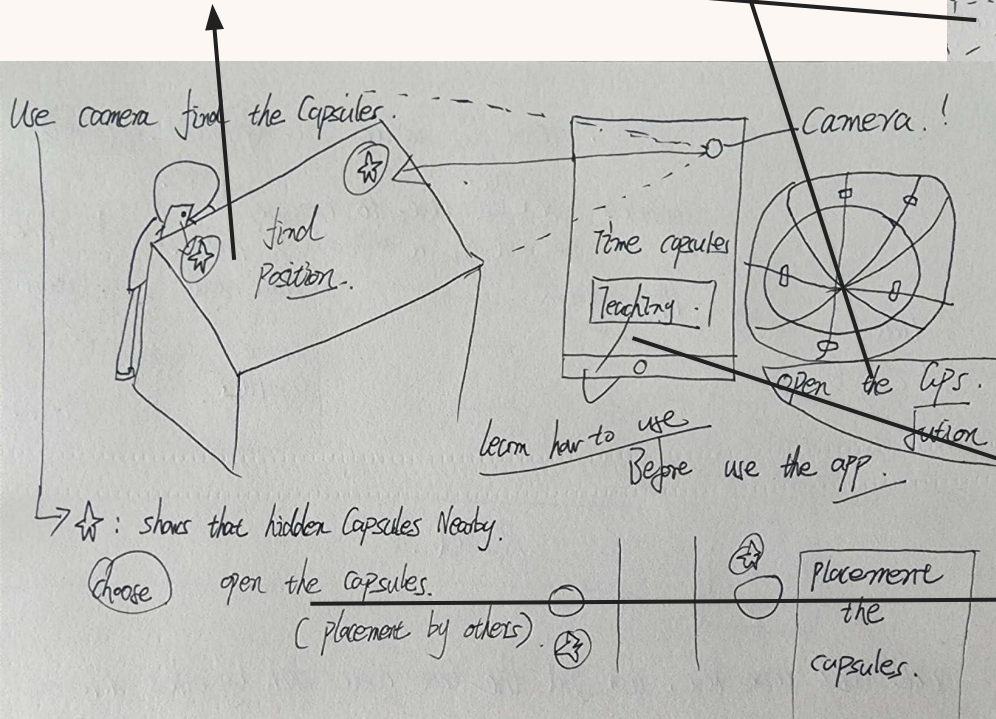 Use coamera find the Capsules.
Camera.!
find
Position.
Time capsules
Teaching.
open the Gps.
learn how to use
Before use the app.
: shows that hidden Capsules Nearby.
Choose open the capsules.
(placement by others).
placement
the
capsules.